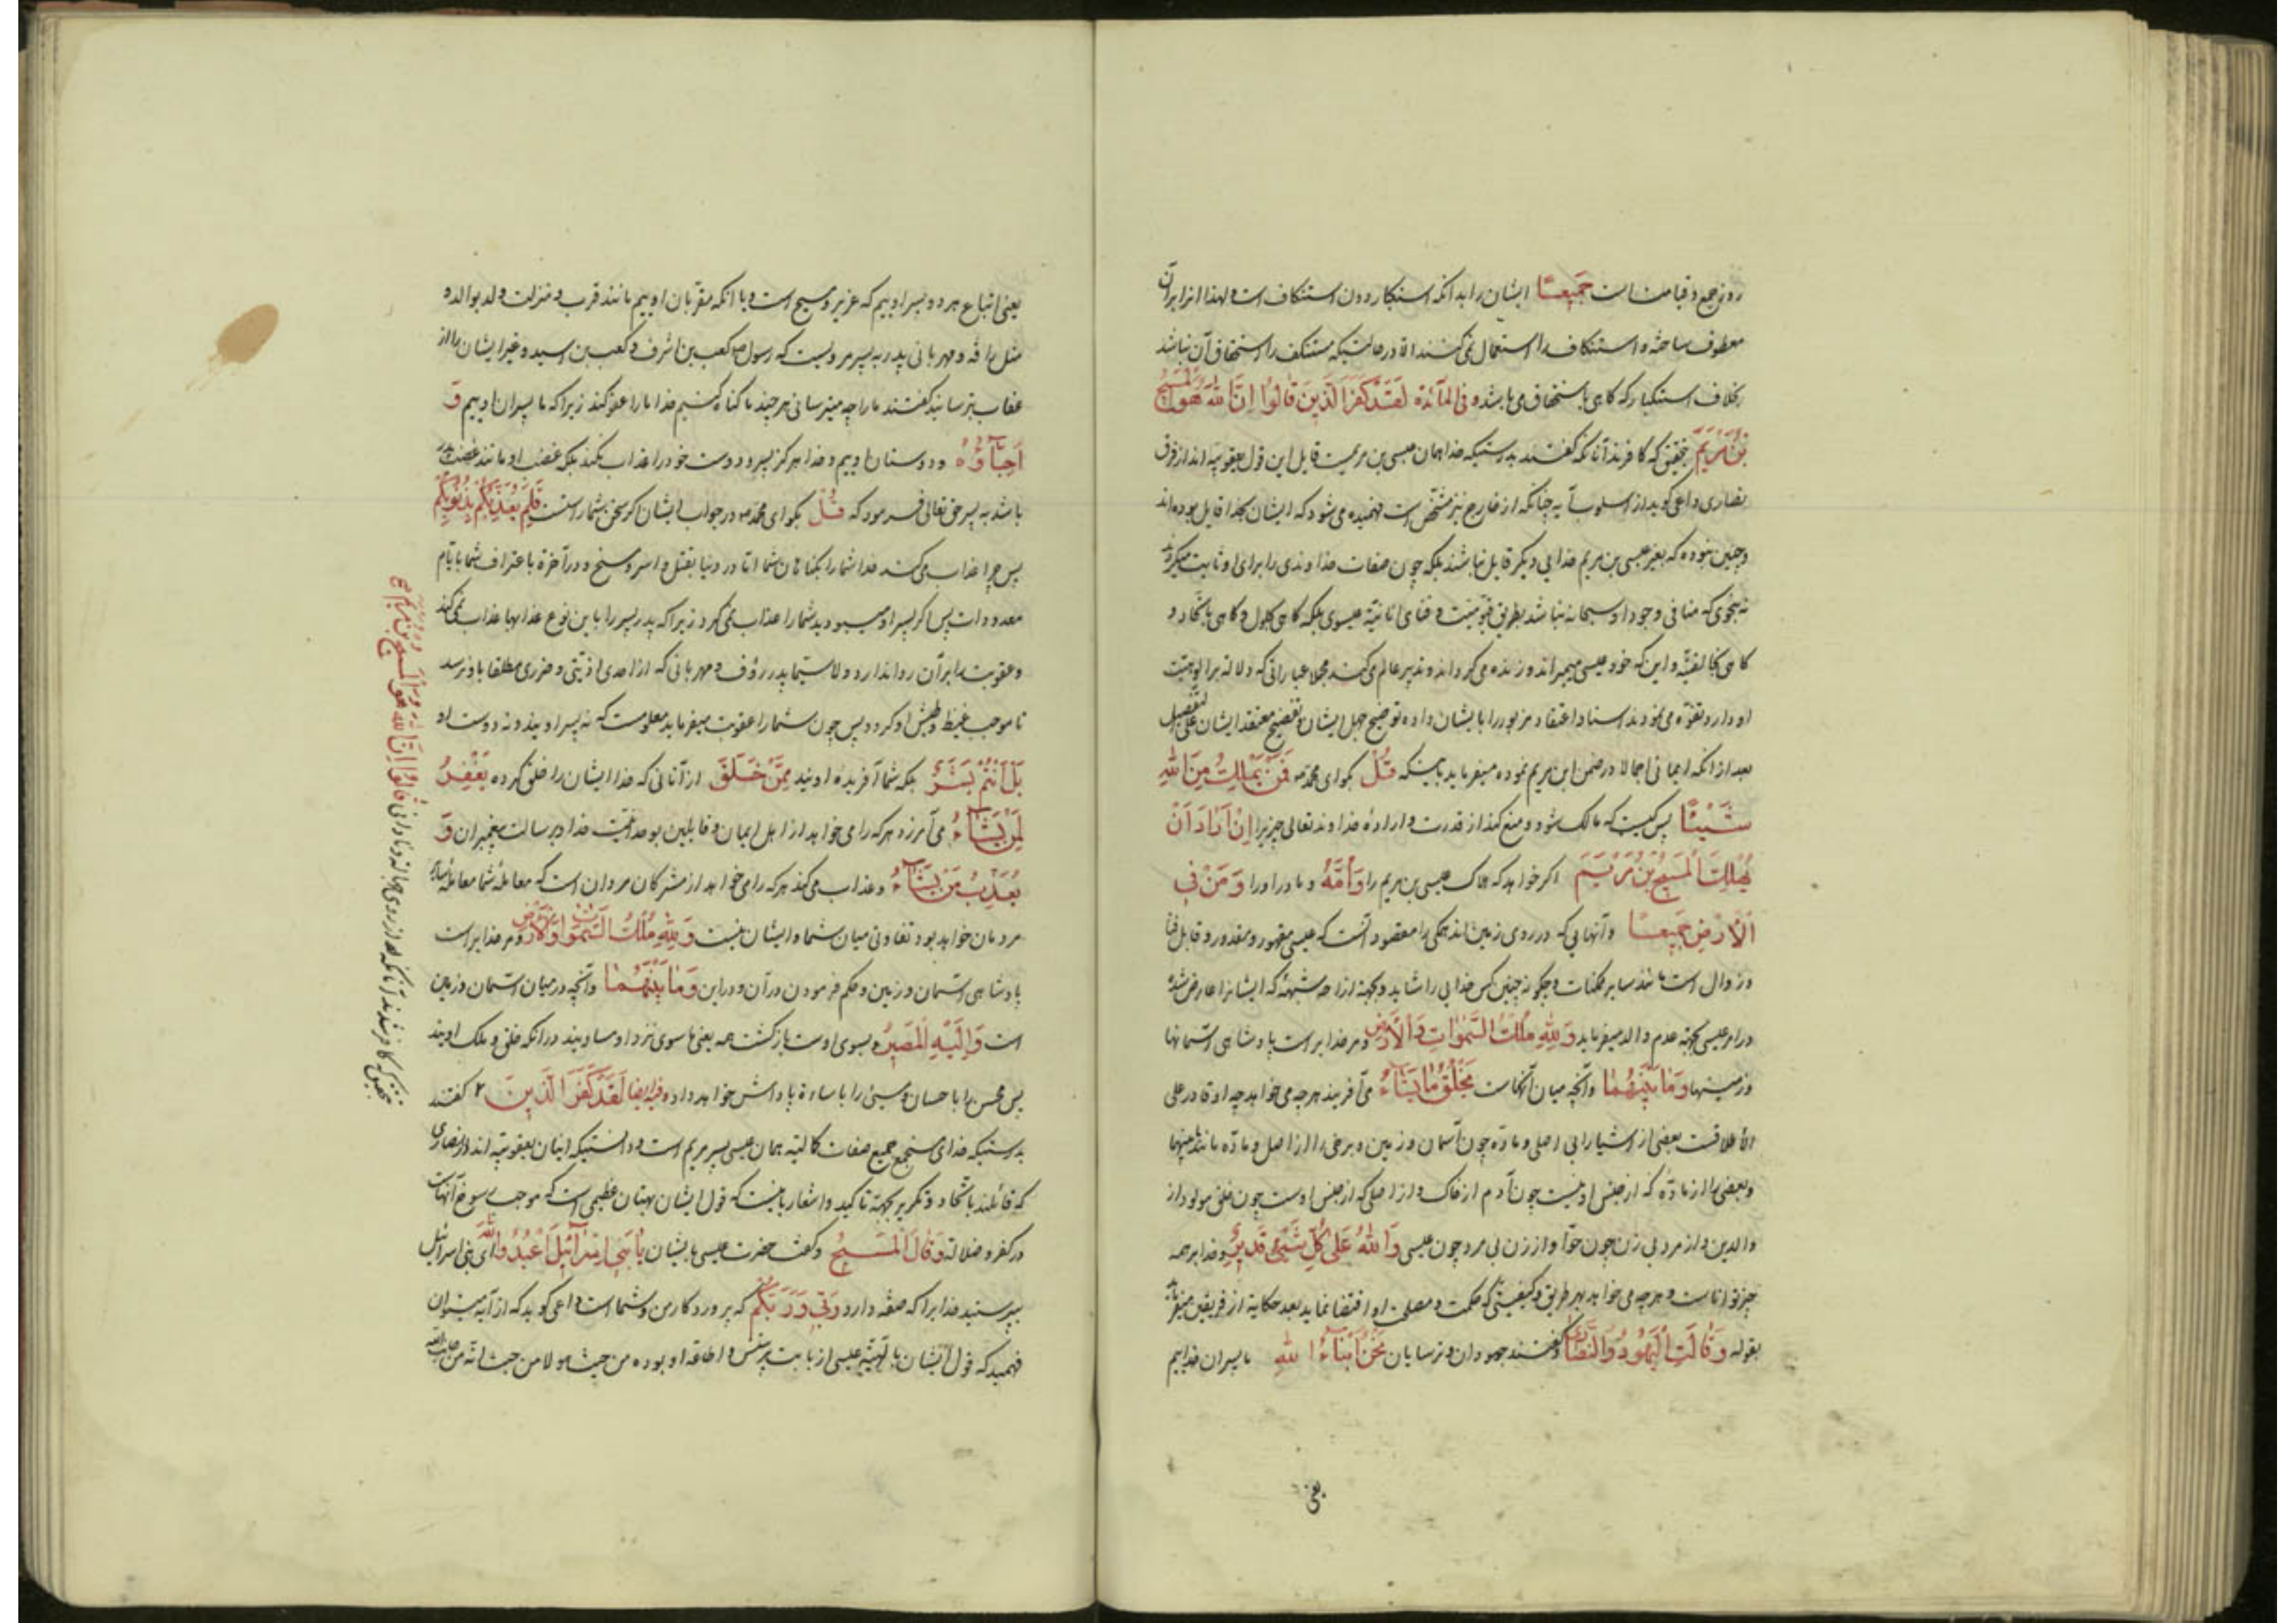 روز جمع و قیامت است جَمیعًا ایشان را بدانکه استکبار دون استنکاف است و لهذا انرا بر آن
معطوف ساخته و استنکاف را استعمال نمی‌کنند الا در حالتیکه مستنکف را استحقاق آن نباشد
بخلاف استکبار که گاهی باستحقاق می باشد و فی المآئدة لَقَدْ کَفَرَ الَّذینَ قالُوا اِنَّ اللّٰهَ هُوَ الْمَسیحُ
بْنُ مَرْیَمَ بتحقیق که کافرند آنانکه گفتند بدرستیکه خدا همان عیسی بن مریمست قایل این قول یعقوبیه اند از فرق
نصاری داعی گوید از اسلوب آیه چنانکه از خارج نیز مشخص است فهمیده می شود که ایشان بخدا قایل بوده اند
و چنین نبوده که بغیر عیسی بن مریم خدایی دیگر قایل نباشند بلکه چون صفات خداوندی را برای او ثابت میکردند
نه بنحوی که منافی وجود او سبحانه نباشد بطریق قیومیت و فنای انانیة عیسوی بلکه گاهی بحلول و گاهی باتحاد و
گاهی بخالقیة و این که خود عیسی میمیراند و زنده می کرداند و تدبیر عالم می کند مجملا عباراتی که دلالة بر الوهیت
او دارد تفوّه می نمودند اسناد اعتقاد مزبور را بایشان داده توضیح جهل ایشان و تفضیح معتقد ایشان علی التفصیل
بعد از انکه ایمائی اجمالا در ضمن ابن مریم نموده میفرماید باینکه قُلْ بگو ای محمد ص فَمَنْ یَمْلِکُ مِنَ اللّٰهِ
شَیْئًا پس کیست که مالک شود و منع کند از قدرت و اراده خداوند تعالی چیزیرا اِنْ اَرادَ اَنْ
یُهْلِکَ الْمَسیحَ بْنَ مَرْیَمَ اکر خواهد که هلاک عیسی بن مریم را وَاُمَّهُ و مادر او را وَمَنْ فِی
الْاَرْضِ جَمیعًا و آنهایی که در روی زمین اند همکی را مقصود آنست که عیسی مقهور و مقدور و قابل فنا
و زوال است مانند سایر ممکنات و چکونه چنین کس خدایی را شاید و بجهة ازاحه شبهه که ایشانرا عارض شده
در امر عیسی بجهة عدم والد میفرماید وَلِلّٰهِ مُلْکُ السَّمٰوٰاتِ وَالْاَرْضِ و مر خدایراست پادشاهی آسمانها
و زمینها وَما بَیْنَهُما و آنچه میان آنهاست یَخْلُقُ ما یَشآءُ می آفریند هر چه می خواهد چه او قادر علی
الاطلاقست بعضی از اشیا را بی اصلی و مادّه چون آسمان و زمین و برخی را از اصل و مادّه مانند ما بینهما
و بعضی را از مادّه که از جنس او نیست چون آدم از خاک و از اصلی که از جنس اوست چون خلق مولود از
والدین و از مرد بی زن چون حوّا و از زن بی مرد چون عیسی وَاللّٰهُ عَلیٰ کُلِّ شَیْءٍ قَدیرٌ و خدا بر همه
چیز تواناست و هر چه می خواهد بهر طریق و کیفیتی که حکمت و مصلحت او اقتضا نماید بعد حکایة از فریقین میفرماید
بقوله وَقالَتِ الْیَهُودُ وَالنَّصاریٰ و گفتند جهودان و ترسایان نَحْنُ اَبْناءُ اللّٰهِ ما پسران خداییم
یعنی
یعنی اتباع هر دو پسر اوییم که عزیر و مسیح است و یا انکه مقربان اوییم مانند قرب و منزلت ولد بوالد و
مثل رافه و مهربانی پدر به پسر مرویست که رسول ص کعب بن اشرف و کعب بن اسید و غیر ایشان را از
عقاب بترسانید گفتند ما را چه میترسانی هر چند ما کناه کنیم خدا ما را عفو کند زیرا که ما پسران اوییم وَ
اَحِبّآؤُهُ و دوستان اوییم و خدا هرکز پسر و دوست خود را عذاب نکند بلکه غضب او مانند غضب پدر
باشد به پسر حق تعالی فرمود که قُلْ بگو ای محمد ص در جواب ایشان اکر سخن شما راست فَلِمَ یُعَذِّبُکُمْ بِذُنُوبِکُمْ
پس چرا عذاب می کند خدا شما را بکناهان شما اما در دنیا بقتل و اسر و مسخ و در آخرة باعتراف شما بایام
معدودات پس اکر پسر او میبودید شما را عذاب نمی کرد زیرا که پدر پسر را باین نوع عذابها عذاب نمی کند
و عقوبت را بر آن روا ندارد و لا سیما پدر رؤف و مهربانی که از احدی اذیتی و ضرری مطلقا باو نرسد
تا موجب غیظ و طیش او کردد پس چون شما را عقوبت میفرماید معلومست که نه پسر اویید و نه دوست او
بَلْ اَنْتُمْ بَشَرٌ بلکه شما آفریده اویید مِمَّنْ خَلَقَ از آنانی که خدا ایشان را خلق کرده یَغْفِرُ
لِمَنْ یَشآءُ می آمرزد هر که را می خواهد از اهل ایمان و قایلین بوحدانیت خدا و برسالت پیغمبران وَ
یُعَذِّبُ مَنْ یَشآءُ و عذاب می کند هر که را می خواهد از مشرکان مردان است که معامله شما معامله سایر
مردمان خواهد بود تفاوتی میان شما و ایشان نیست وَلِلّٰهِ مُلْکُ السَّمٰوٰاتِ وَالْاَرْضِ و مر خدایراست
پادشاهی آسمان و زمین و حکم فرمودن در آن و در این وَما بَیْنَهُما و آنچه در میان آسمان و زمین
است وَاِلَیْهِ الْمَصیرُ و بسوی اوست بازکشت همه یعنی ما سوی نزد او مساویند در انکه خلق و ملک اویند
پس محسن را باحسان و مسیئ را باساءة پاداش خواهد داد و فیها ایضا لَقَدْ کَفَرَ الَّذینَ گفتند
بدرستیکه خدای مستجمع جمیع صفات کمالیه همان عیسی پسر مریم است و دانستیکه اینان یعقوبیه اند از نصاری
که قائلند باتحاد و تکریر بجهة تاکید و اشعار باینست که قول ایشان بهتان عظیمی است که موجب رسوخ آنهاست
در کفر و ضلالة وَقالَ الْمَسیحُ و گفت حضرت عیسی بایشان یا بَنی اِسْرآئیلَ اعْبُدُوا اللّٰهَ ای بنی اسرائیل
بپرستید خدایرا که صفه دارد رَبّی وَرَبَّکُمْ که پروردکار من و شما است داعی گوید که از آیه میتوان
فهمید که قول ایشان بالوهیة عیسی از بابت پرستش و اطاعة او بوده من حیث هو لا من حیث انه من جانب الله
بتحقیق که کافر شدند آنانکه از روی جهالة و نادانی قالُوا اِنَّ اللّٰهَ هُوَ الْمَسیحُ بْنُ مَرْیَمَ صح